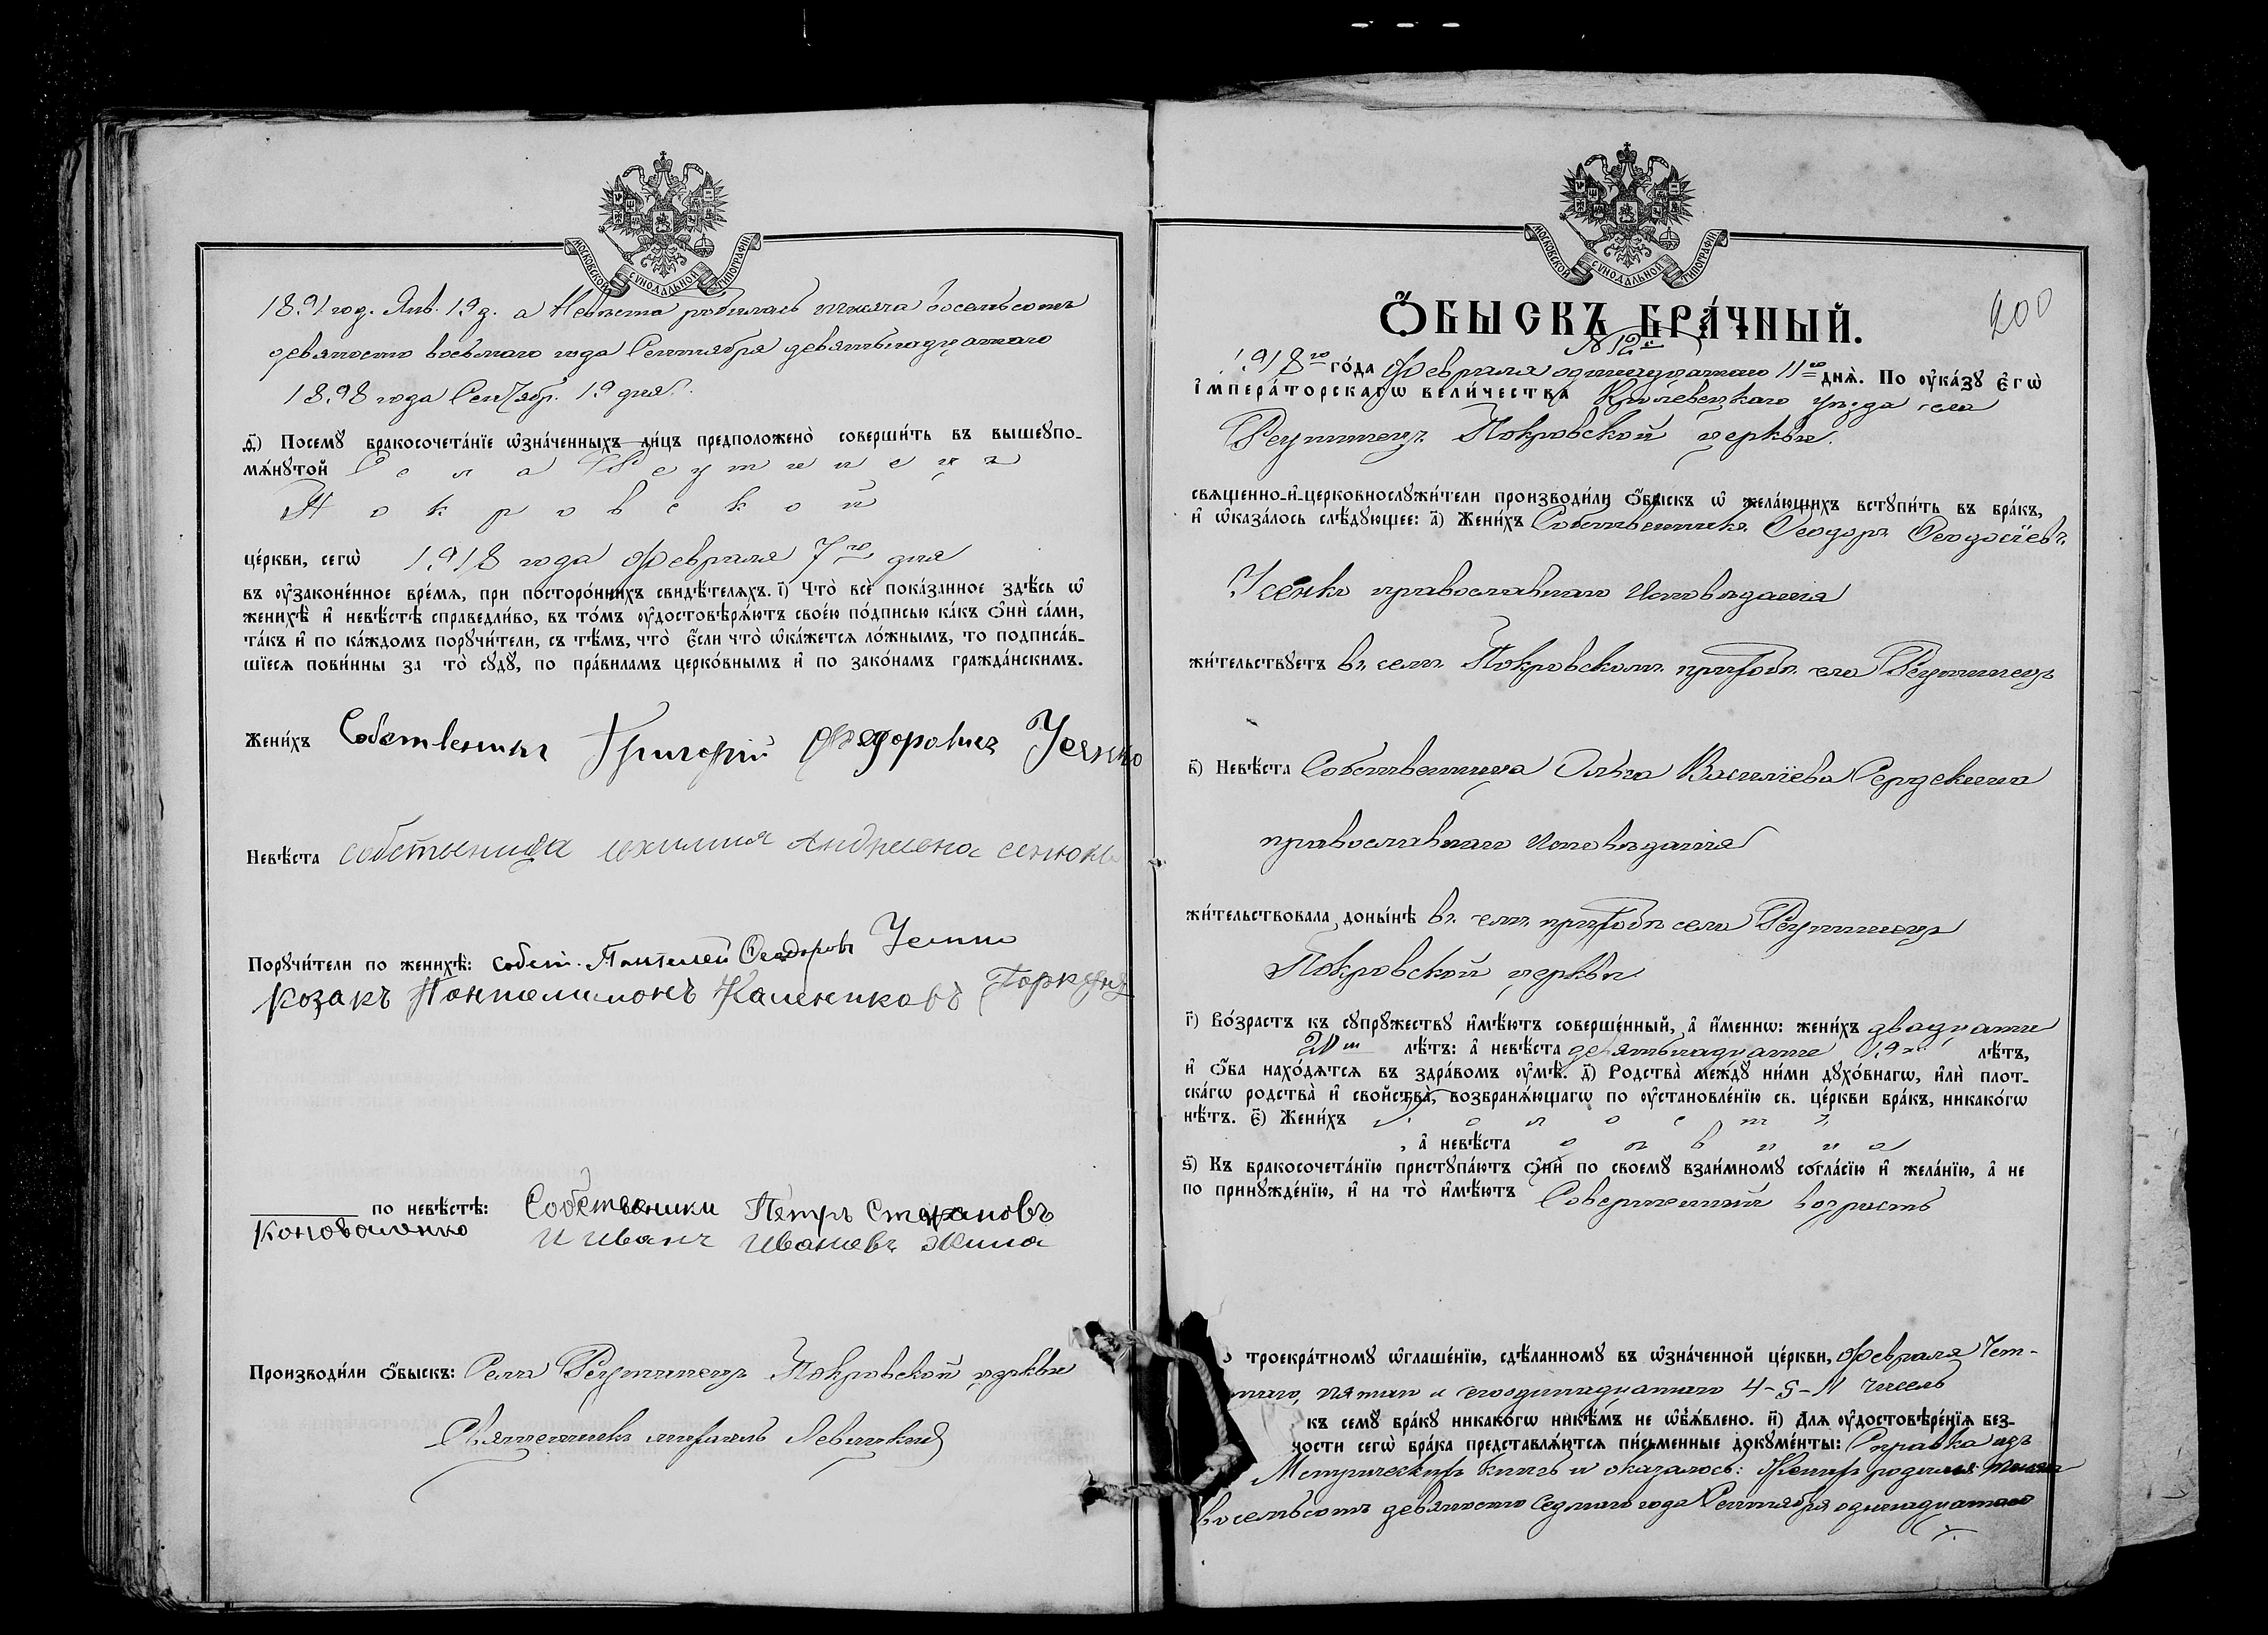 МОСКОВСКОЙ СѴНОДАЛЬНОЙ ТИПОГРАФІИ
1891 год. Янв. 19 д. а Невѣста родилась тысяча восемьсотъ
девяносто восьмаго года Сентября девятьнадцатаго
1898 года Сентябр. 19 дня.
д҃) Посемꙋ бракосочета́нїе ѡ҆зна́ченныхъ ли́цъ предположено̀ соверши́ть въ вышеупо-
мѧ́нꙋтой Села Реутинецъ
Покровской
це́ркви, сегѡ̀ 1918 года Февраля 7го дня
въ ѹ҆законе́нное вре́мѧ, при посторо́ннихъ свидѣ́телѧхъ. і҃) Что̀ всѐ пока́занное здѣ́сь ѡ҆
женихѣ̀ и҆ невѣ́стѣ справедли́во, въ то́мъ ѹ҆достовѣрѧ́ютъ свое́ю по́дписью ка́къ ѻ҆нѝ са́ми,
та́къ и҆ по ка́ждомъ порꙋчи́тели, съ тѣ́мъ, что̀ є҆́сли что̀ ѡ҆ка́жетсѧ ло́жнымъ, то подписа́в-
шїесѧ пови́нны за то̀ сꙋдꙋ̀, по пра́виламъ церко́внымъ и҆ по зако́намъ гражда́нскимъ.
Жени́хъ Собственикъ Григорій Федоровичъ Усенко
Невѣ́ста собственица Андреевна
Порꙋчи́тели по женихѣ̀: собст. Пантелей Феодоровъ Усенко
козакъ Пантелимонъ Калениковъ
по невѣ́стѣ: Собственики Петръ Стефановъ
Коноваленко И Иванъ Ивановъ Жила
Производи́ли ѻ҆́быскъ: Села Реутинецъ Покровской церкви
Священникъ Михаилъ Левицкій
МОСКОВСКОЙ СѴНОДАЛЬНОЙ ТИПОГРАФІИ
Ѻ҆́БЫСКЪ БРА́ЧНЫЙ.
200
№ 12й
1918го го́да Февраля одинадцатаго 11го днѧ̀. По ѹ҆ка́зꙋ є҆гѡ̀
і҆мпера́торскагѡ вели́чества Кролевецкаго уѣзда села
Реутинецъ Покровской церкви.
свѧще́нно-и҆-церковнослꙋжи́тели производи́ли ѻ҆́быскъ ѡ҆ жела́ющихъ встꙋпи́ть въ бра́къ,
и҆ ѡ҆каза́лось слѣ́дꙋющее: а҃) Жени́хъ Собственникъ Феодоръ Феодосіевъ
Усенко православнаго исповѣданія
жи́тельствꙋетъ въ селѣ Покровскомъ приходѣ села Реутинецъ
в҃) Невѣ́ста Собственница Ольга Василіева Сердекина
православнаго исповѣданія
жи́тельствовала доны́нѣ въ селѣ приходѣ села Реутинецъ
Покровской церкви
г҃) Во́зрастъ къ сꙋпрꙋжествꙋ и҆мѣ́ютъ соверше́нный, а҆ и҆́меннѡ: жени́хъ двадцати
20ти лѣ́тъ: а҆ невѣ́ста девятьнадцати 19ти лѣ́тъ,
и҆ ѻ҆́ба нахо́дѧтсѧ въ здра́вомъ ѹ҆мѣ̀. д҃) Родства̀ ме́ждꙋ ни́ми дꙋхо́внагѡ, и҆лѝ плот-
ска́гѡ родства̀ и҆ свойства̀, возбранѧ́ющагѡ по ѹ҆становле́нїю св. це́ркви бра́къ, никако́гѡ
нѣ́тъ. є҃) Жени́хъ холостъ
, а҆ невѣ́ста дѣвица
ѕ҃) Къ бракосочета́нїю пристꙋпа́ютъ ѻ҆нѝ по своемꙋ̀ взаи́мномꙋ согла́сїю и҆ жела́нїю, а҆ не
по принꙋжде́нїю, и҆ на то̀ и҆мѣ́ютъ Совершенный возрастъ
троекра́тномꙋ ѡ҆глаше́нїю, сдѣ́ланномꙋ въ ѡ҆зна́ченной це́ркви, Февраля Чет-
таго, пятаго и одинадцатаго 4-5-11 чиселъ
къ семꙋ̀ бра́кꙋ никако́гѡ никѣ́мъ не ѡ҆б̾ѧ́влено. и҃) Длѧ ѹ҆достовѣре́нїѧ без-
ности сегѡ̀ бра́ка представлѧ́ютсѧ пи́сьменные докꙋме́нты: Справка изъ
Метрическихъ книгъ и оказалось: Женихъ родился тысяча
восемьсотъ девяносто седьмаго года Сентября одинадцатаго